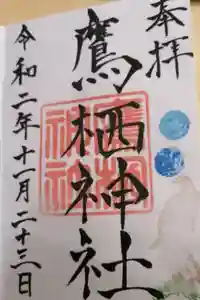 奉拝
鷹栖神社
令和二年十一月二十三日